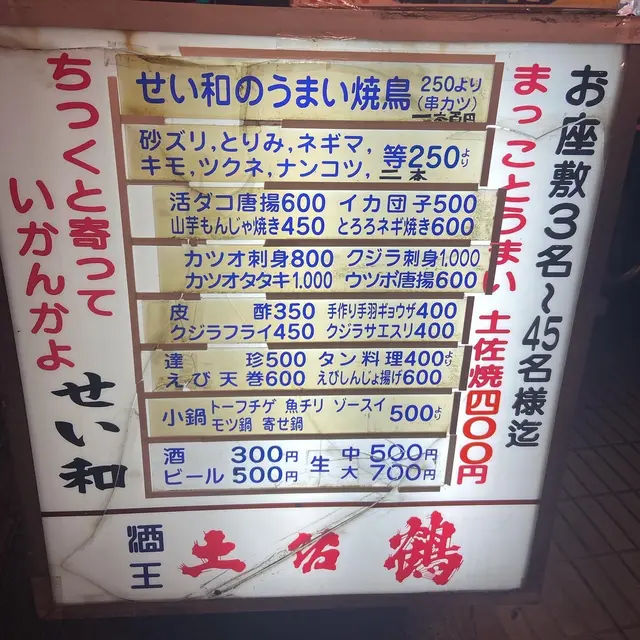 お座敷3名〜45名様迄
まっことうまい 土佐焼四〇〇円
せい和のうまい焼鳥 250より
(串カツ)
砂ズリ,とりみ,ネギマ,
キモ,ツクネ,ナンコツ, 等250より
二本
活ダコ唐揚600 イカ団子500
山芋もんじゃ焼き450 とろろネギ焼き600
カツオ刺身800 クジラ刺身1,000
カツオタタキ1,000 ウツボ唐揚600
皮酢350 手作り手羽ギョウザ400
クジラフライ450 クジラサエズリ400
達珍500 タン料理400より
えび天巻600 えびしんじょ揚げ600
小鍋 トーフチゲ 魚チリ ゾースイ
モツ鍋 寄せ鍋 500より
酒 300円 生 中 500円
ビール 500円 大 700円
ちっくと寄って
いかんかよ
せい和
酒王
土佐鶴